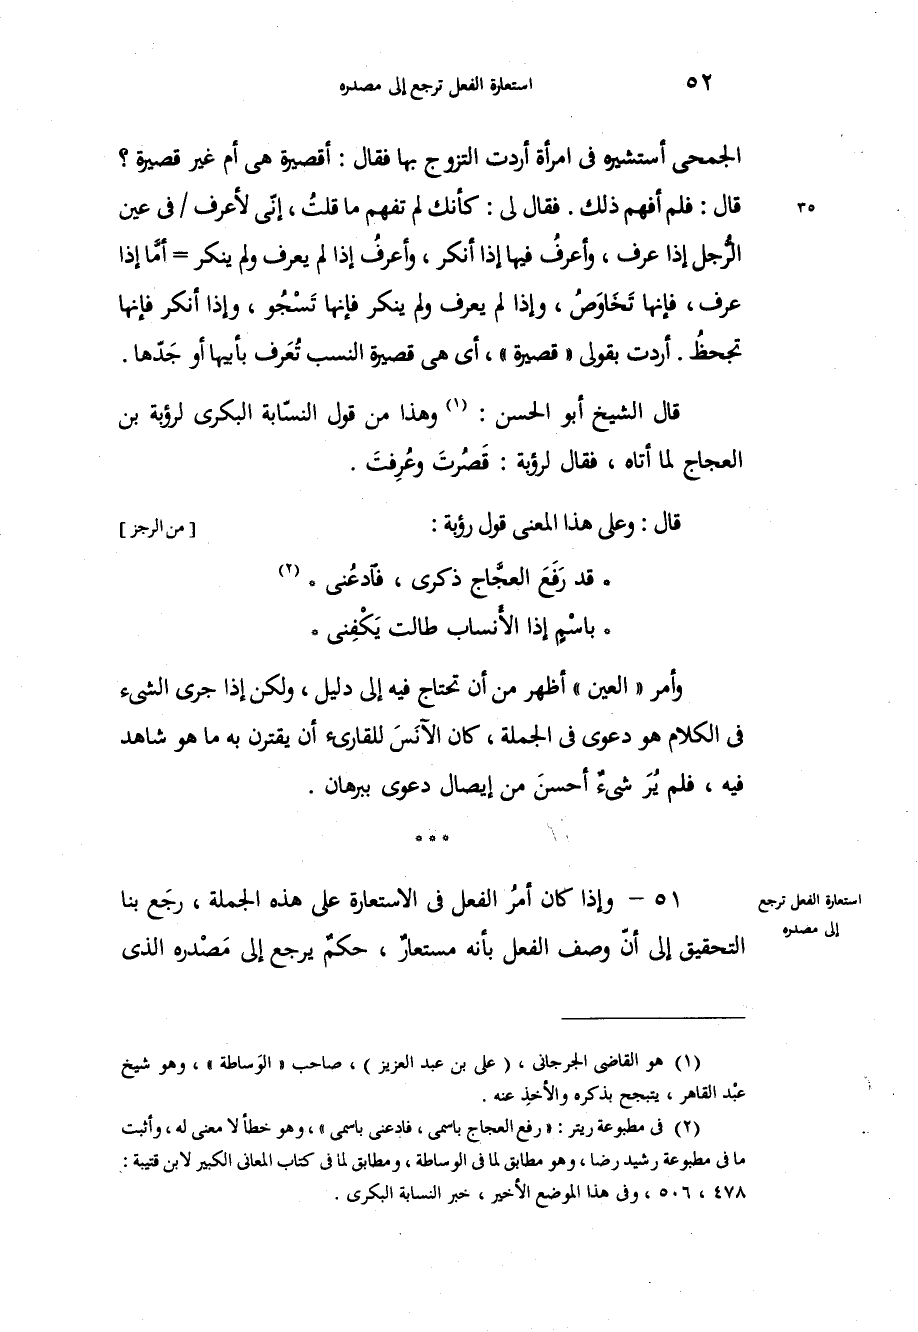 ٥٢
استعارة الفعل ترجع إلى مصدره
الجمحى أستشيره فى امرأة أردت التزوج بها فقال : أقصيرة هى أم غير قصيرة ؟
٣٥
قال : فلم أفهم ذلك . فقال لى : كأنك لم تفهم ما قلتُ ، إنّى لأعرف / فى عين
الرُّجل إذا عرف ، وأعرفُ فيها إذا أنكر ، وأعرفُ إذا لم يعرف ولم ينكر = أمَّا إذا
عرف ، فإنها تَخَاوَصُ ، وإذا لم يعرف ولم ينكر فإنها تَسْجُو ، وإذا أنكر فإنها
تجحظُ . أردت بقولى « قصيرة » ، أى هى قصيرة النسب تُعَرف بأبيها أو جَدّها .
قال الشيخ أبو الحسن : (١) وهذا من قول النسّابة البكرى لرؤبة بن
العجاج لما أتاه ، فقال لرؤبة : قَصُرتَ وعُرِفتَ .
قال : وعلى هذا المعنى قول رؤبة : [ من الرجز ]
• قد رَفَعَ العجَّاج ذكرى ، فآدعُنى • (٢)
• باسْمٍ إذا الأَنساب طالت يَكْفِنى •
وأمر « العين » أظهر من أن تحتاج فيه إلى دليل ، ولكن إذا جرى الشىء
فى الكلام هو دعوى فى الجملة ، كان الآنَسَ للقارىء أن يقترن به ما هو شاهد
فيه ، فلم يُرَ شىءٌ أحسنَ من إيصال دعوى ببرهان .
* * *
استعارة الفعل ترجع
إلى مصدره
٥١ – وإذا كان أمرُ الفعل فى الاستعارة على هذه الجملة ، رجَع بنا
التحقيق إلى أنّ وصف الفعل بأنه مستعارٌ ، حكمٌ يرجع إلى مَصْدره الذى
(١) هو القاضى الجرجانى ، ( على بن عبد العزيز ) ، صاحب « الوَساطة » ، وهو شيخ
عبْد القاهر ، يتبجح بذكره والأخذِ عنه .
(٢) فى مطبوعة ريتر : « رفع العجاج باسمى ، فادعنى باسمى » ، وهو خطأ لا معنى له ، وأثبت
ما فى مطبوعة رشيد رضا ، وهو مطابق لما فى الوساطة ، ومطابق لما فى كتاب المعانى الكبير لابن قتيبة :
٤٧٨ ، ٥٠٦ ، وفى هذا الموضع الأخير ، خبر النسابة البكرى .